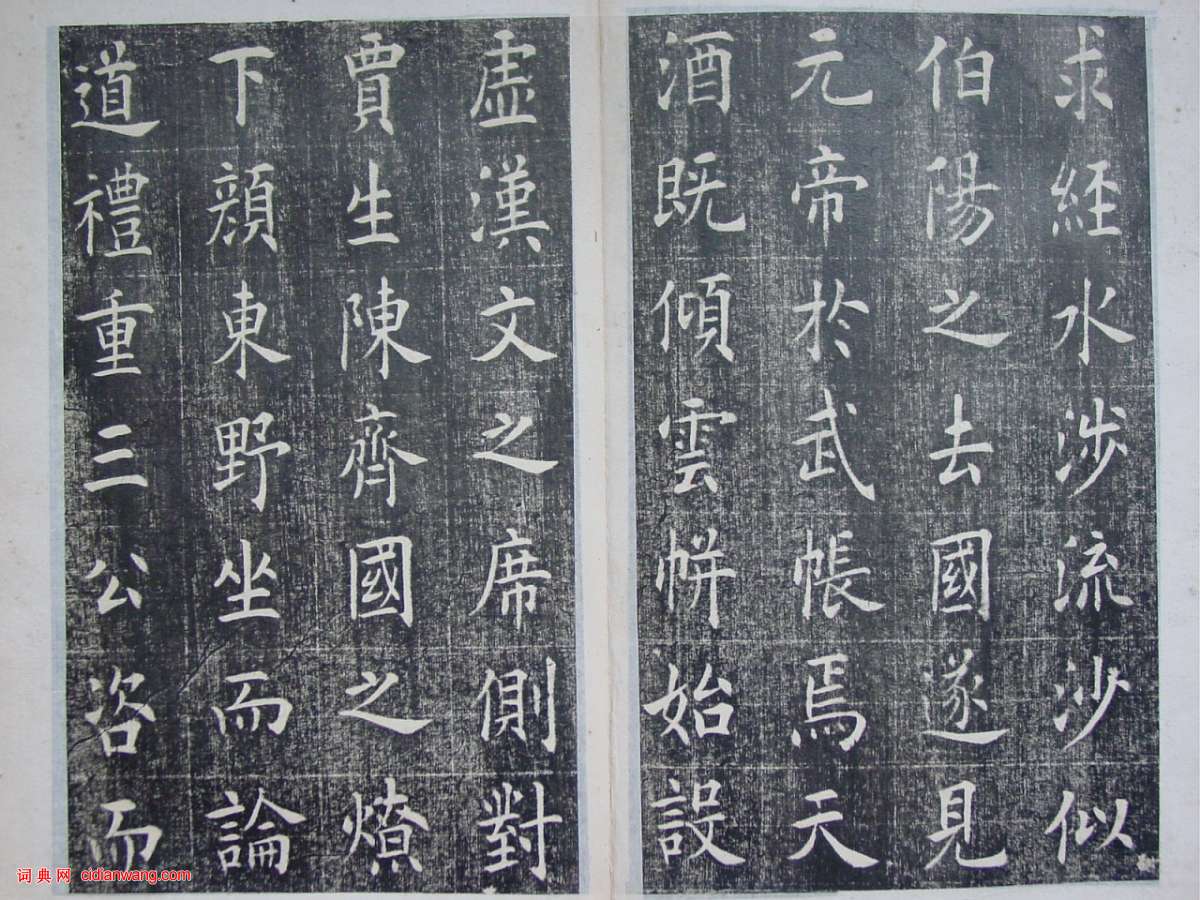 求經水涉流沙似
伯陽之去國遂見
元帝於武帳焉天
酒既傾雲帡始設
虛漢文之席側對
賈生陳齊國之燎
下顏東野坐而論
道禮重三公咨而
词典网 cidianwang.com